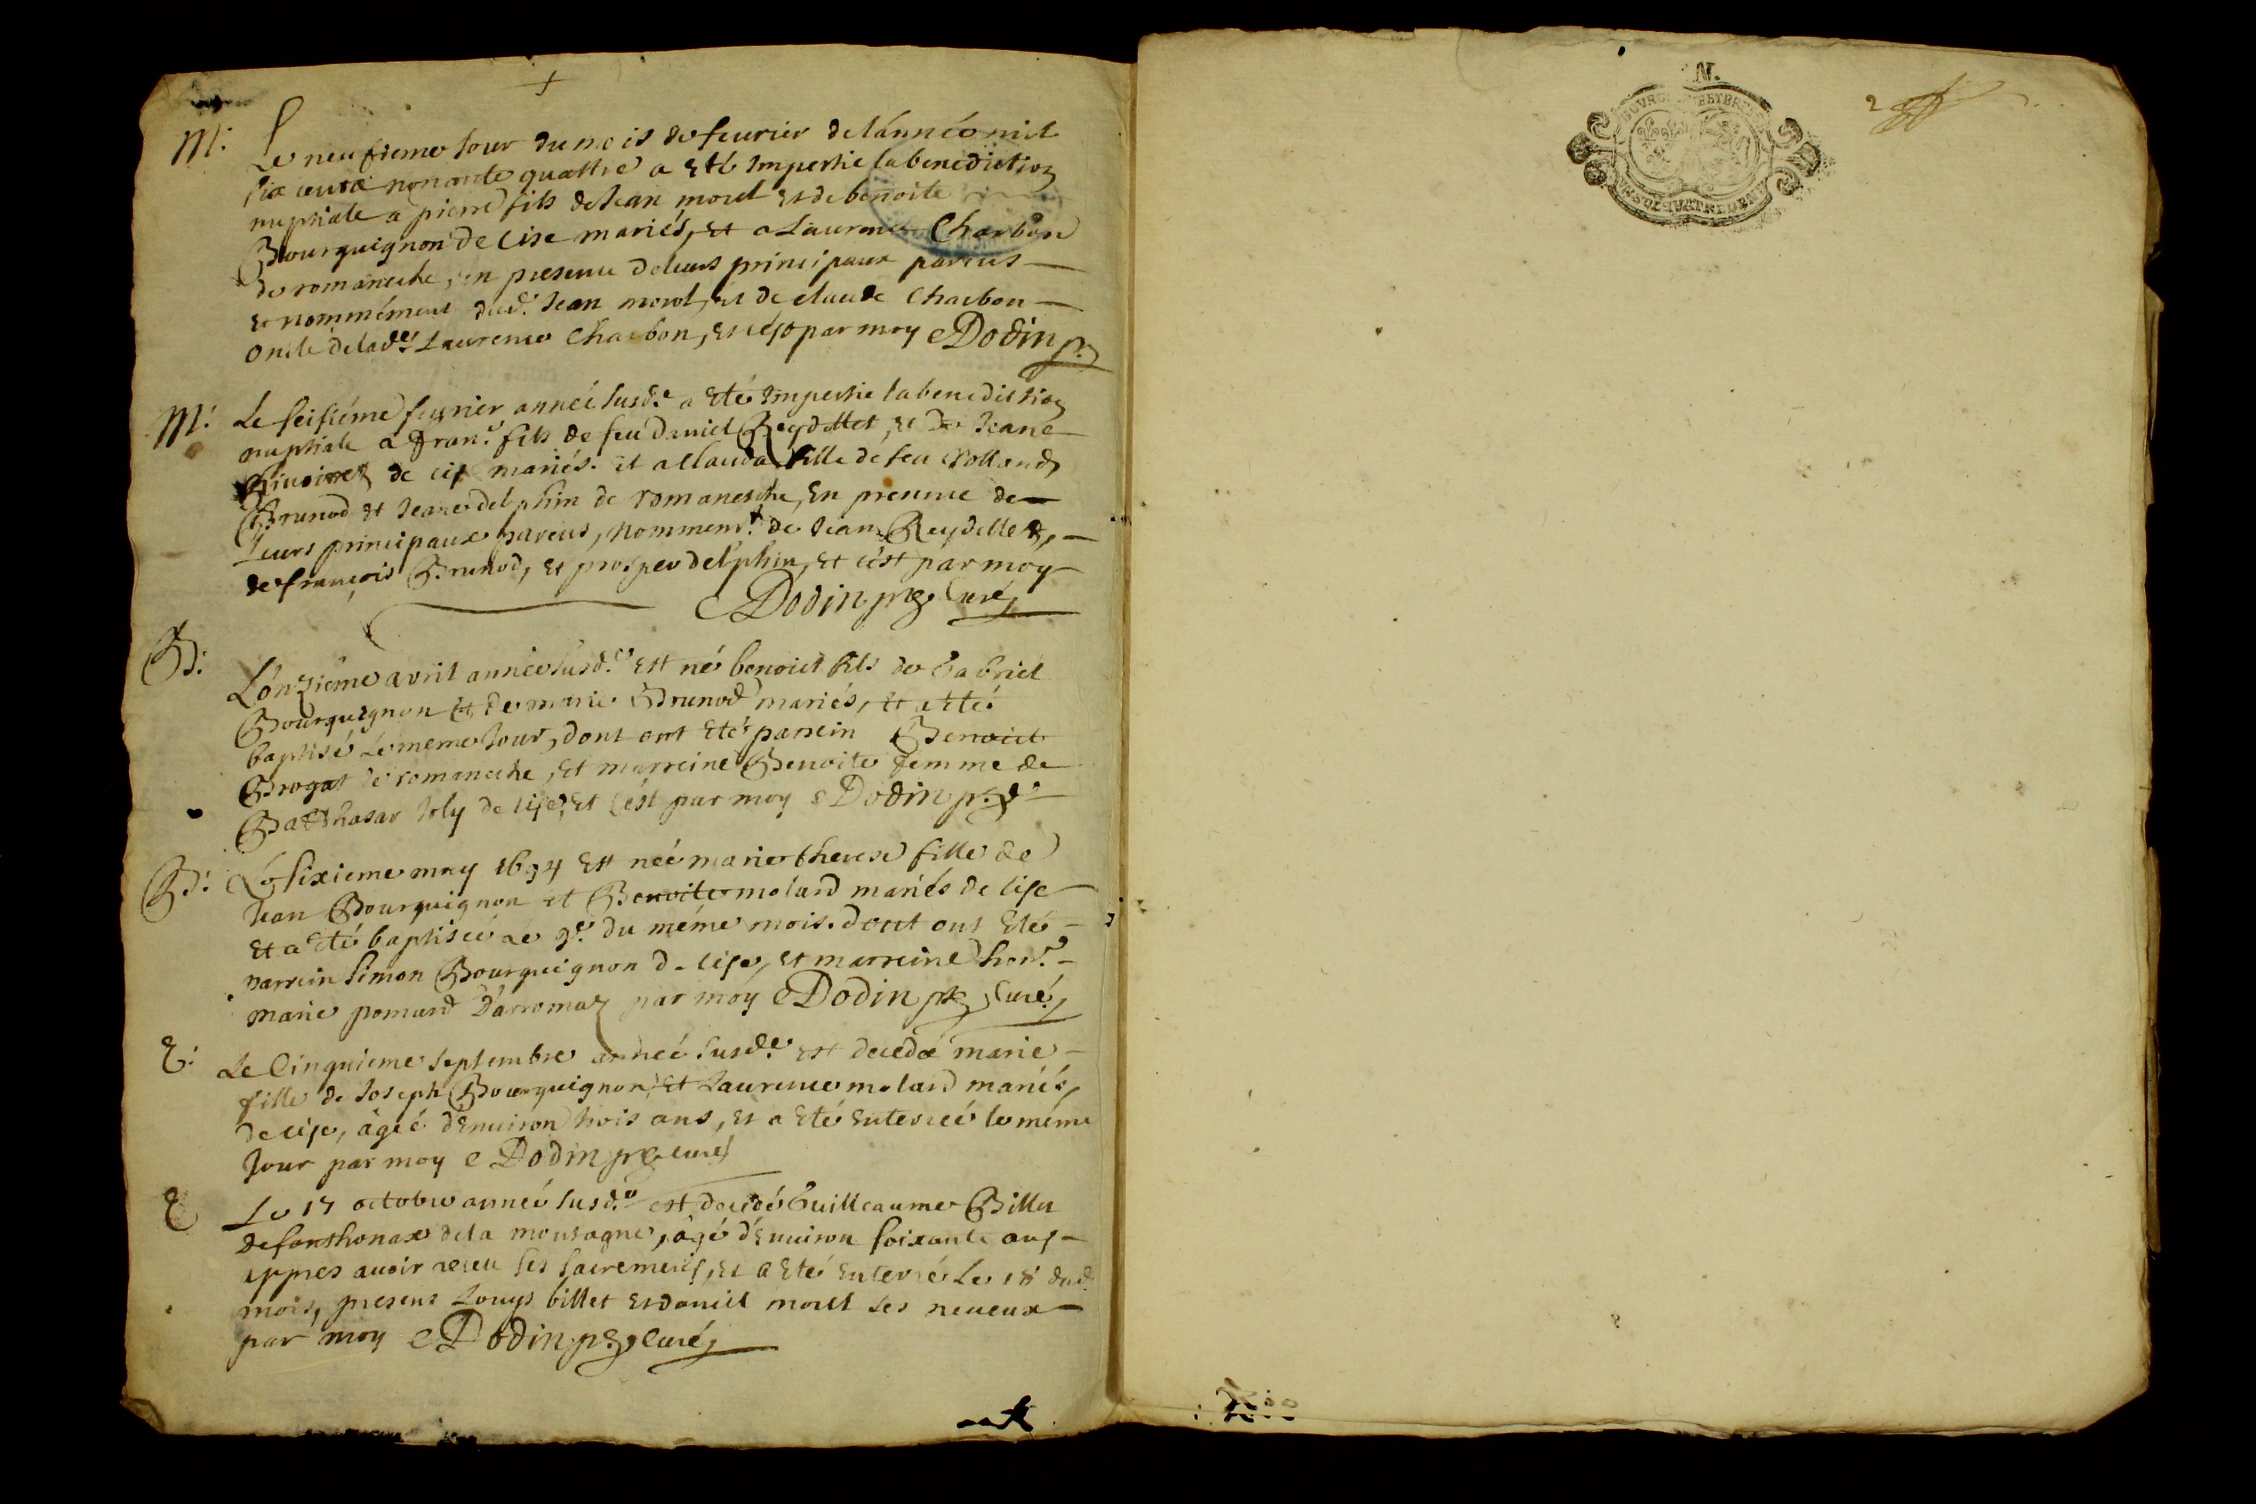 M:
Le neufieme Jour du mois de feurier de lánnéé mil
six cents nonante quattre a Eté Impertie la benediction
nuptiale a pierre fils de Jean morel Et de benoite
Bourguignon de Cise mariés, Et a Laurence Charbon
de romaneche, en presence de leurs principaux parens
Et nommément dud.' Jean morel, Et de claude Charbon
oncle de lad.e Laurence Charbon, Et cést par moy Dodin p.
M:
Le seisiéme feurier année susd.e a Eté Impertie la benediction
nuptiale a Fran.s fils de feu Daniel Reydellet, Et de Jeane
de Cise mariés. Et a Clauda fille de feu Rolland
Brunod Et Jeane delphin de romanesche, En presence de
Leurs principaux parens, nommem.t de Jean Reydellet,
de françois Brunod, Et prosper delphin, Et cést par moy
Dodin p. Curé
B:
Lónzieme avril année susd.e Est né benoict fils de Gabriel
Bourguignon Et de marie Brunod mariés, Et a Eté
baptisé Le meme Jour, dont ont Eté parrein Benoict
Brogat de romaneche, Et marreine Benoite femme de
Balthasar Joly de Cise, Et Cést par moy Dodin p.
B:
Le sixieme may 1694 Est néé marie therese fille de
Jean Bourguignon et Benoite molard mariés de Cise
Et a Eté baptiséé Le 9.e du méme mois. dont ont Eté
parrein Simon Bourguignon de Cise, Et marreine hon.e
marie pomard D'arromaz par moy Dodin p. Curé
E:
Le Cinquieme septembre année susd.e Est decedéé marie
fille de Joseph Bourguignon, Et Laurence molard mariés,
de Cise, ágéé dEnuiron trois ans, Et a Eté Enterréé le méme
Jour par moy Dodin p. curé
E
Le 17 octobre année susd.e est decedé Guilleaume Billet
de fonthonax de la montagne, ágé d'Enuiron soixante ans
appres auoir receu ses sacremens, Et a Eté Enterré Le 18 dud.
mois, presens Louys billet Et daniel morel ses neueux
par moy Dodin p. Curé
N.
2